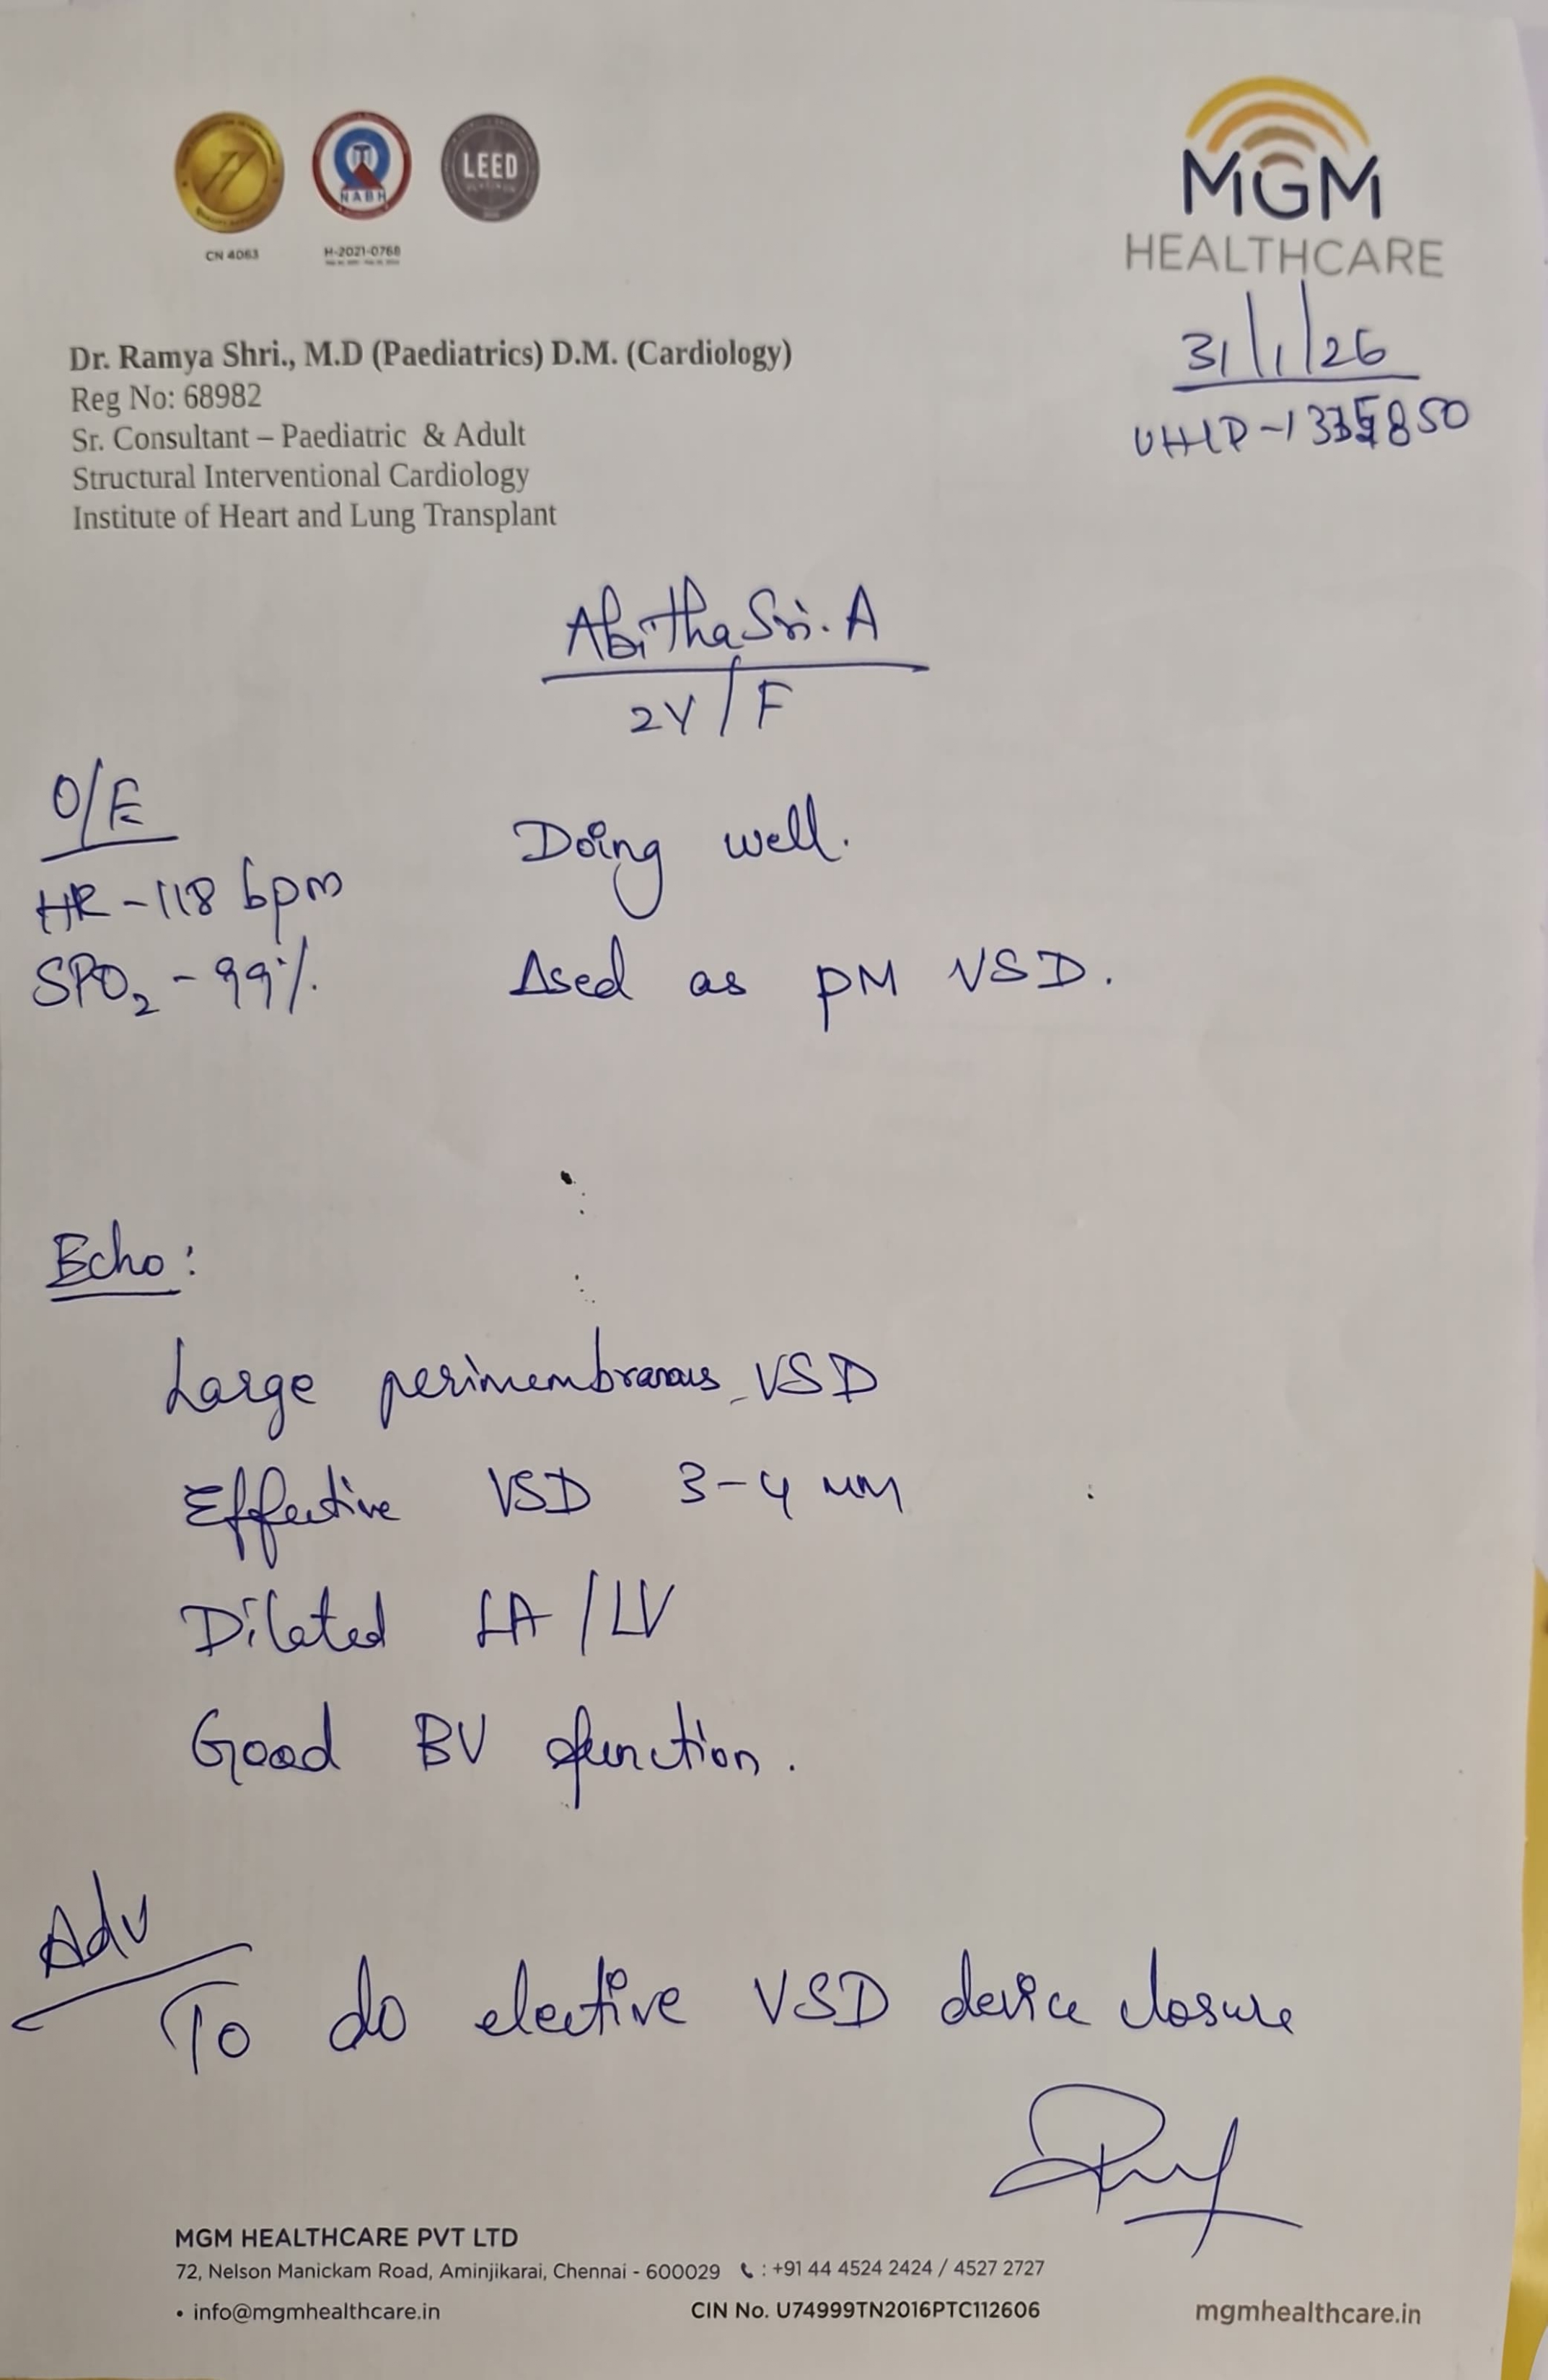 NABH
LEED
PLATINUM
CN 4063
H-2021-0768
MGM
HEALTHCARE
31/1/26
UHID-1335850
Dr. Ramya Shri., M.D (Paediatrics) D.M. (Cardiology)
Reg No: 68982
Sr. Consultant – Paediatric & Adult
Structural Interventional Cardiology
Institute of Heart and Lung Transplant
Abitha Sri. A
2Y/F
O/E
HR - 118 bpm
SPO₂ - 99%.
Doing well.
Δsed as PM VSD.
Echo:
Large perimembranous VSD
Effective VSD 3-4 mm
Dilated LA/LV
Good BV function.
Adv
To do elective VSD device closure
MGM HEALTHCARE PVT LTD
72, Nelson Manickam Road, Aminjikarai, Chennai - 600029 : +91 44 4524 2424 / 4527 2727
• info@mgmhealthcare.in CIN No. U74999TN2016PTC112606 mgmhealthcare.in